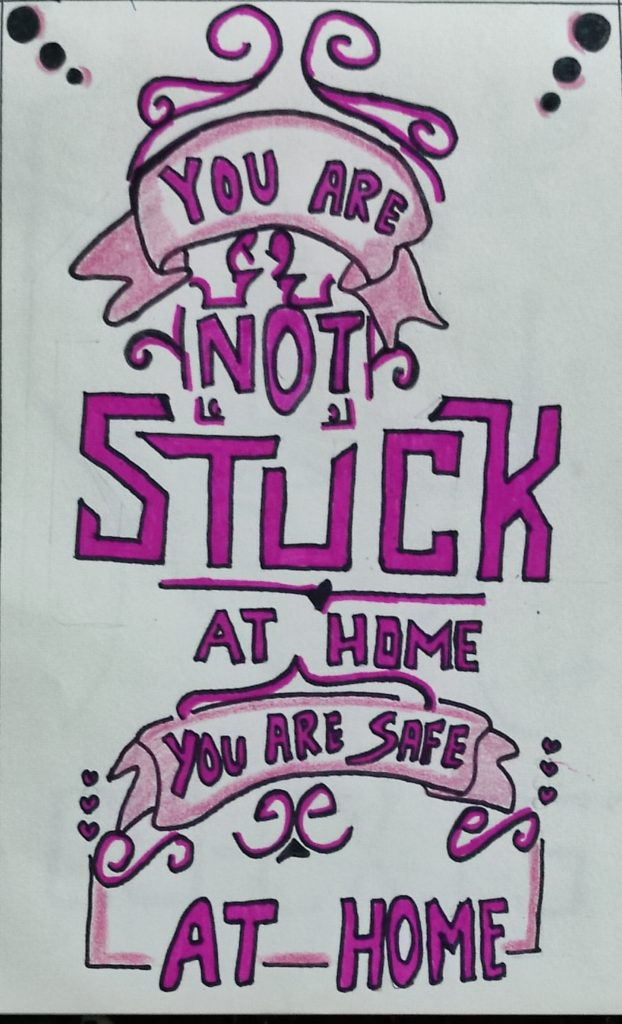 YOU ARE
NOT
STUCK
AT HOME
YOU ARE SAFE
AT HOME